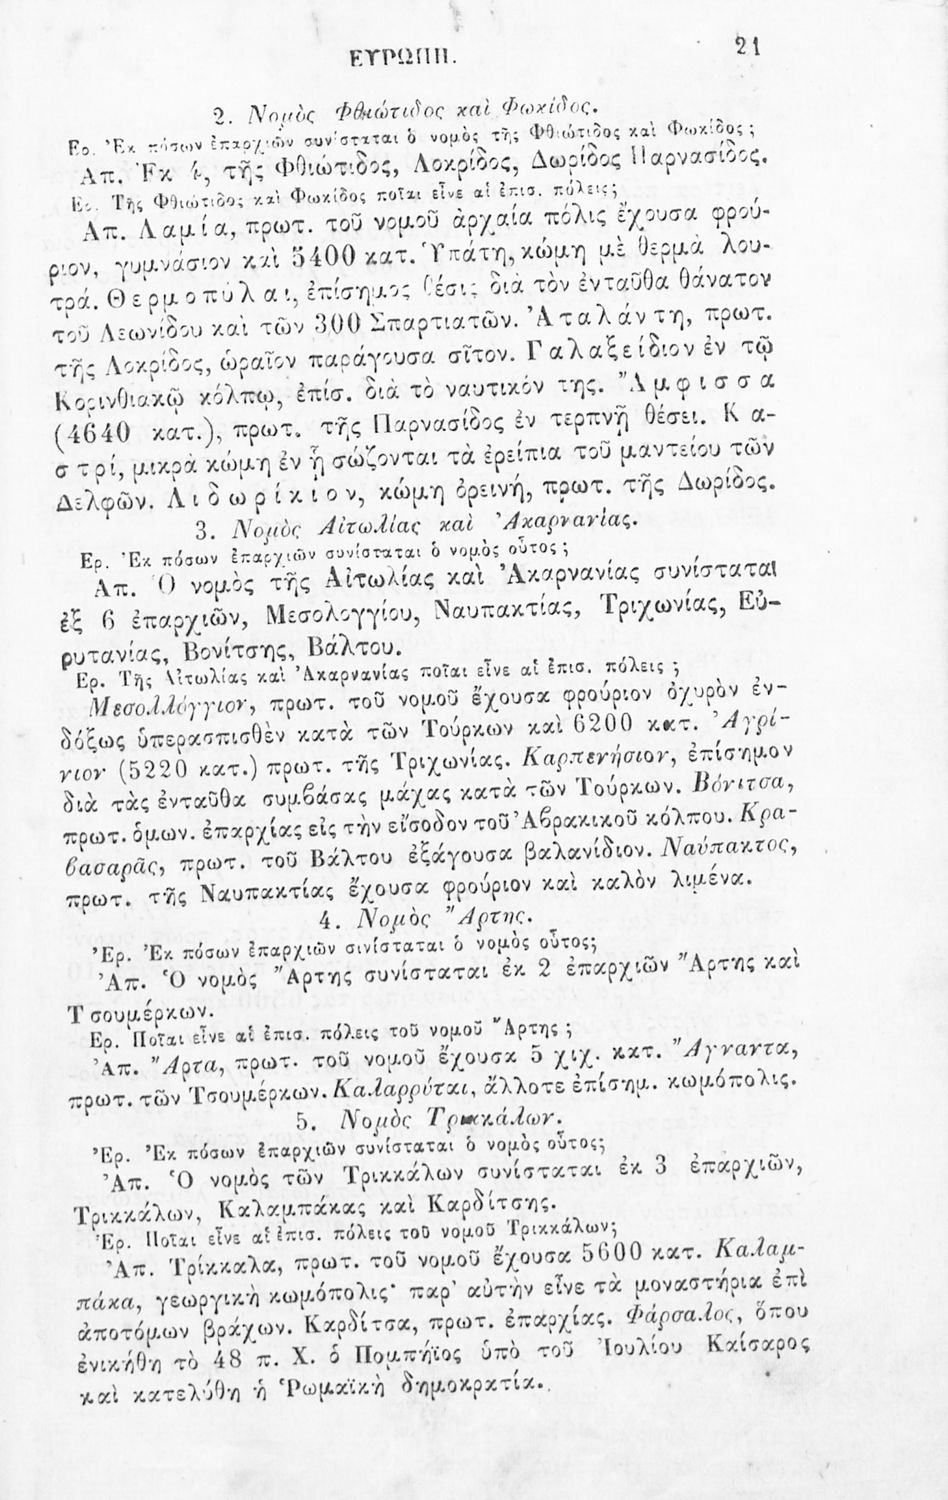 ΕΥΡΩΠΗ.
21
2. Νομὸς Φθιώτιδος καὶ Φωκίδος.
Ερ. Ἐκ πόσων ἐπαρχιῶν συνίσταται ὁ νομὸς τῆς Φθιώτιδος καὶ Φωκίδος;
Ἀπ. Ἐκ 4, τῆς Φθιώτιδος, Λοκρίδος, Δωρίδος Παρνασίδος.
Ερ. Τῆς Φθιώτιδος καὶ Φωκίδος ποῖαι εἶνε αἱ ἐπισ. πόλεις;
Ἀπ. Λαμία, πρωτ. τοῦ νομοῦ ἀρχαία πόλις ἔχουσα φρού-
ριον, γυμνάσιον καὶ 5400 κατ. Ὑπάτη, κώμη μὲ θερμὰ λου-
τρά. Θερμοπύλαι, ἐπίσημος θέσις διὰ τὸν ἐνταῦθα θάνατον
τοῦ Λεωνίδου καὶ τῶν 300 Σπαρτιατῶν. Ἀταλάντη, πρωτ.
τῆς Λοκρίδος, ὡραῖον παράγουσα σῖτον. Γαλαξείδιον ἐν τῷ
Κορινθιακῷ κόλπῳ, ἐπίσ. διὰ τὸ ναυτικόν της. Ἄμφισσα
(4640 κατ.), πρωτ. τῆς Παρνασίδος ἐν τερπνῇ θέσει. Κα-
στρί, μικρὰ κώμη ἐν ᾗ σώζονται τὰ ἐρείπια τοῦ μαντείου τῶν
Δελφῶν. Λιδωρίκιον, κώμη ὀρεινή, πρωτ. τῆς Δωρίδος.
3. Νομὸς Αἰτωλίας καὶ Ἀκαρνανίας.
Ερ. Ἐκ πόσων ἐπαρχιῶν συνίσταται ὁ νομὸς οὗτος;
Ἀπ. Ὁ νομὸς τῆς Αἰτωλίας καὶ Ἀκαρνανίας συνίσταται
ἐξ 6 ἐπαρχιῶν, Μεσολογγίου, Ναυπακτίας, Τριχωνίας, Εὐ-
ρυτανίας, Βονίτσης, Βάλτου.
Ερ. Τῆς Αἰτωλίας καὶ Ἀκαρνανίας ποῖαι εἶνε αἱ ἐπισ. πόλεις;
Μεσολλόγγιον, πρωτ. τοῦ νομοῦ ἔχουσα φρούριον ὀχυρὸν ἐν-
δόξως ὑπερασπισθὲν κατὰ τῶν Τούρκων καὶ 6200 κατ. Ἀγρί-
νιον (5220 κατ.) πρωτ. τῆς Τριχωνίας. Καρπενήσιον, ἐπίσημον
διὰ τὰς ἐνταῦθα συμβάσας μάχας κατὰ τῶν Τούρκων. Βόνιτσα,
πρωτ. ὁμων. ἐπαρχίας εἰς τὴν εἴσοδον τοῦ Ἀβρακικοῦ κόλπου. Κρα-
βασαρᾶς, πρωτ. τοῦ Βάλτου ἐξάγουσα βαλανίδιον. Ναύπακτος,
πρωτ. τῆς Ναυπακτίας ἔχουσα φρούριον καὶ καλὸν λιμένα.
4. Νομὸς Ἄρτης.
Ἐρ. Ἐκ πόσων ἐπαρχιῶν σινίσταται ὁ νομὸς οὗτος;
Ἀπ. Ὁ νομὸς Ἄρτης συνίσταται ἐκ 2 ἐπαρχιῶν Ἄρτης καὶ
Τσουμέρκων.
Ερ. Ποῖαι εἶνε αἱ ἐπισ. πόλεις τοῦ νομοῦ Ἄρτης;
Ἀπ. Ἄρτα, πρωτ. τοῦ νομοῦ ἔχουσα 5 χιχ. κατ. Ἄγναντα,
πρωτ. τῶν Τσουμέρκων. Καλαρρύται, ἄλλοτε ἐπίσημ. κωμόπολις.
5. Νομὸς Τρικκάλων.
Ἐρ. Ἐκ πόσων ἐπαρχιῶν συνίσταται ὁ νομὸς οὗτος;
Ἀπ. Ὁ νομὸς τῶν Τρικκάλων συνίσταται ἐκ 3 ἐπαρχιῶν,
Τρικκάλων, Καλαμπάκας καὶ Καρδίτσης.
Ἐρ. Ποῖαι εἶνε αἱ ἐπισ. πόλεις τοῦ νομοῦ Τρικκάλων;
Ἀπ. Τρίκκαλα, πρωτ. τοῦ νομοῦ ἔχουσα 5600 κατ. Καλαμ-
πάκα, γεωργικὴ κωμόπολις· παρ' αὐτὴν εἶνε τὰ μοναστήρια ἐπὶ
ἀποτόμων βράχων. Καρδίτσα, πρωτ. ἐπαρχίας. Φάρσαλος, ὅπου
ἐνικήθη τὸ 48 π. Χ. ὁ Πομπήϊος ὑπὸ τοῦ Ἰουλίου Καίσαρος
καὶ κατελύθη ἡ Ῥωμαϊκὴ δημοκρατία.